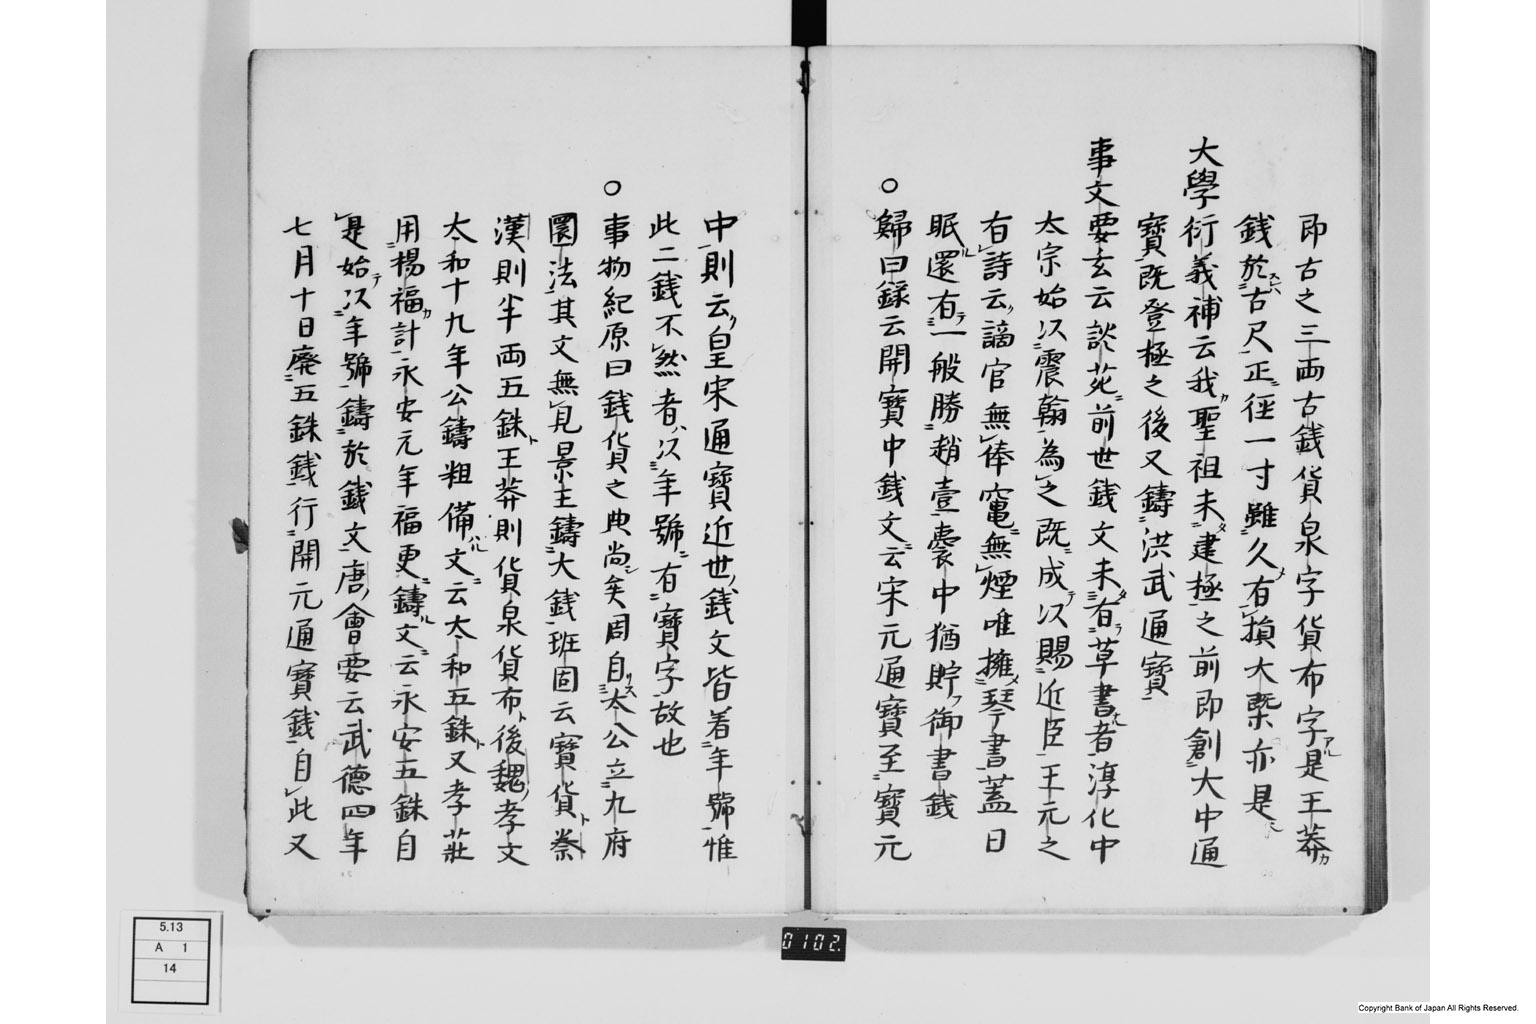 即古之三両古銭貨泉字貨布字是王莽
銭於古尺正徑一寸雖久有損大槩亦是
大學衍義補云我聖祖未建極之前即創大中通
寶既登極之後又鑄洪武通寶
事文要玄云談苑前世銭文未有草書者淳化中
太宗始以震翰為之既成以賜近臣王元之
有詩云謫官無俸竃無煙唯擁琴書蓋日
眠還有一般勝趙壹嚢中猶貯御書銭
○歸曰録云開寶中銭文云宋元通寶至寶元
中則云皇宋通寶近世銭文皆着年號惟
此二銭不然者以年號有寶字故也
○事物紀原曰銭貨之典尚矣周自太公立九府
圜法其文無見景王鑄大銭班固云寶貨秦
漢則半両五銖王莽則貨泉貨布後魏孝文
太和十九年公鑄粗備文云太和五銖又孝莊
用楊福計永安元年福更鑄文云永安五銖自
是始以年號鑄於銭文唐會要云武德四年
七月十日廃五銖銭行開元通寶銭自此又
5.13
A 1
14
0102.
Copyright Bank of Japan All Rights Reserved.